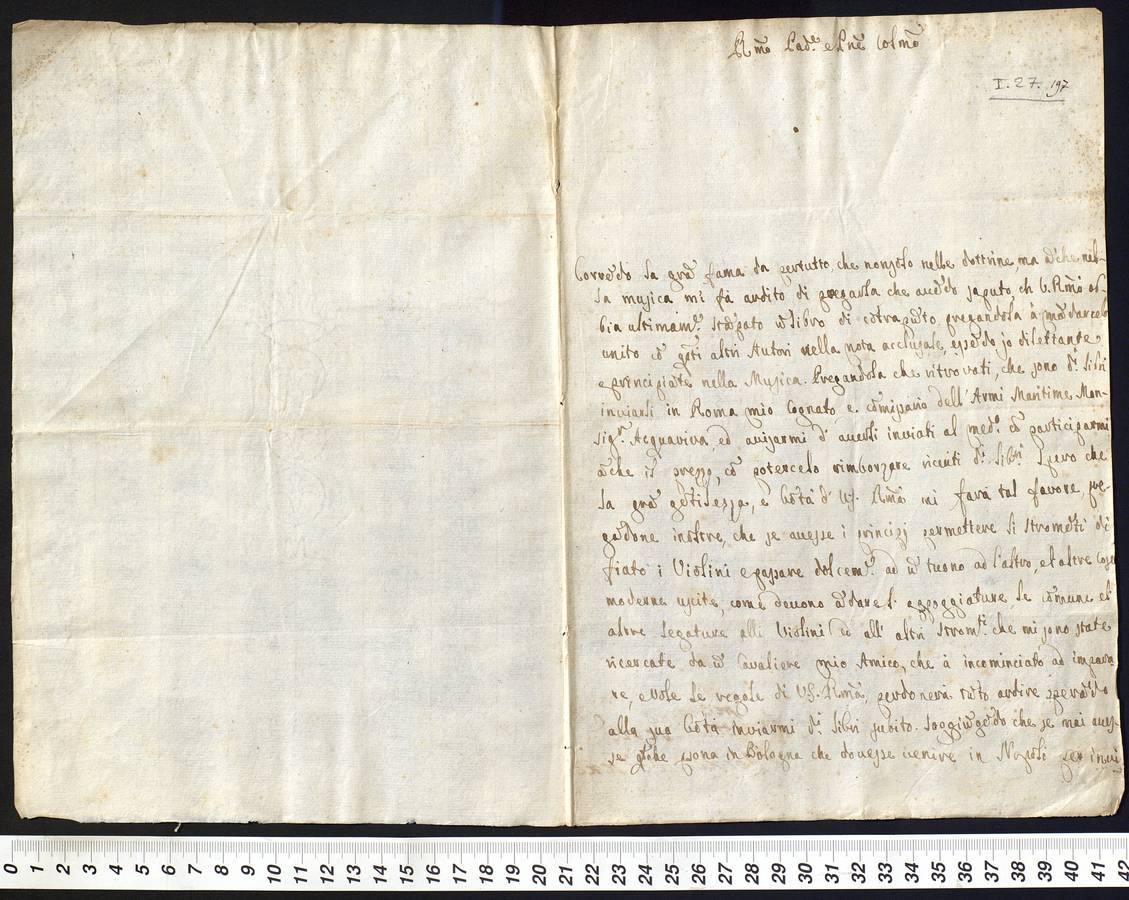 R.mo Pad.e e Pne Colmo
I. 27. 197
Correndo la grã fama da pertutto, che nonsolo nelle dottrine, ma ãche nel-
la musica mi fà ardito di pregarla che auẽdo saputo, ch V. R.mã ab-
bia ultimam.e stãpato ũ libro di cõtrapũto, pregandola à mãdarcelo
unito cõ gs̃ti altri Autori nella nota acclusale, essẽdo io dilettante,
e principiãte nella Musica. Pregandola che ritrovati, che sono d.i libri
inviarli in Roma mio Cognato e cõmissario dell'Armi Maritime Mon-
sig.r Acquaviva, ed avisarmi d'auerli inviati al med.o cõ participarmi
ãche il prezzo, cõ potercelo rimborzare ricevuti d.i libri. Spero che
la grã gẽtilezza, e bõtà di V.S. R.mã mi farà tal favore, pre-
gãdone inoltre, che se auesse i principj permettere li stromẽti di
fiato i Violini e passare dolcem.e ad ũ tuono ad l'altro, et altre cose
moderne uscite, come deuono ãdare l'appoggiature, le cõmune et
altre legature alli Violini ed all'altri strom.ti che mi sono state
ricercate da ũ Cavaliere mio Amico, che à incominciato ad impara-
re, e vole le regole di V.S. R.mã, perdonerà tãto ardire sperãdo
alla sua bõtà inviarmi d.i libri subito. Soggiũgẽdo che se mai aues-
se qlche psona in Bologna che douesse uenire in Napoli per invi
0 1 2 3 4 5 6 7 8 9 10 11 12 13 14 15 16 17 18 19 20 21 22 23 24 25 26 27 28 29 30 31 32 33 34 35 36 37 38 39 40 41 42